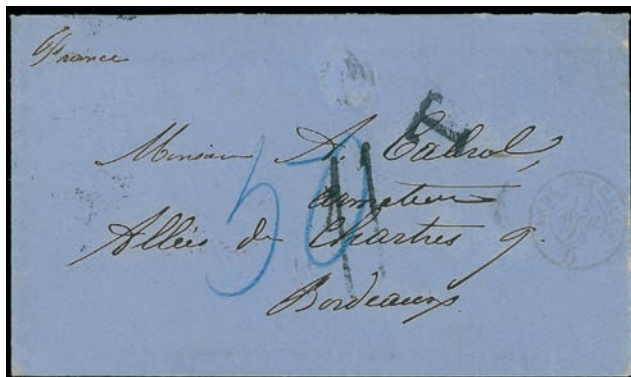 France
Monsieur A. Cabrol,
armateur
50
Allées de Chartres 9.
Bordeaux